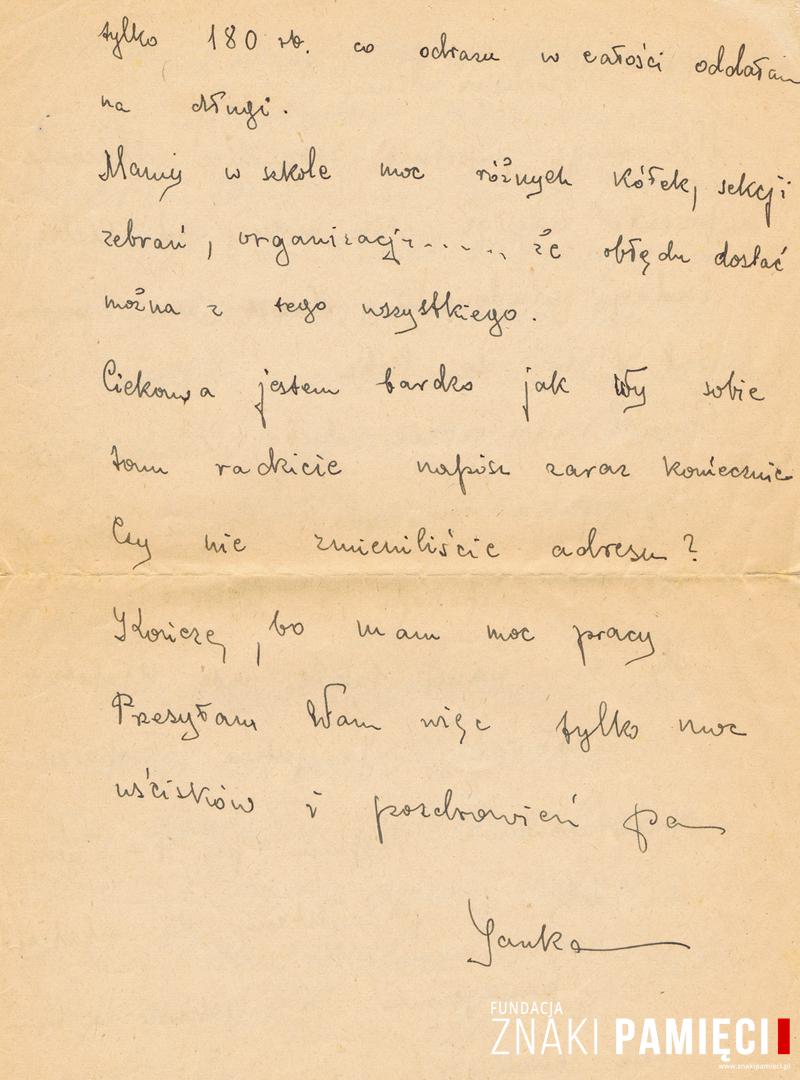 tylko 180 rb. co odrazu w całości oddałam
na długi.
Mamy w szkole moc różnych kółek, sekcji
zebrań, organizacji..... że obłędu dostać
można z tego wszystkiego.
Ciekawa jestem bardzo jak Wy sobie
tam radzicie napisz zaraz koniecznie
Czy nie zmieniliście adresu?
Kończę, bo mam moc pracy
Przesyłam Wam więc tylko moc
uścisków i pozdrowień Pa
Janka
FUNDACJA
ZNAKI PAMIĘCI
www.znakipamieci.pl